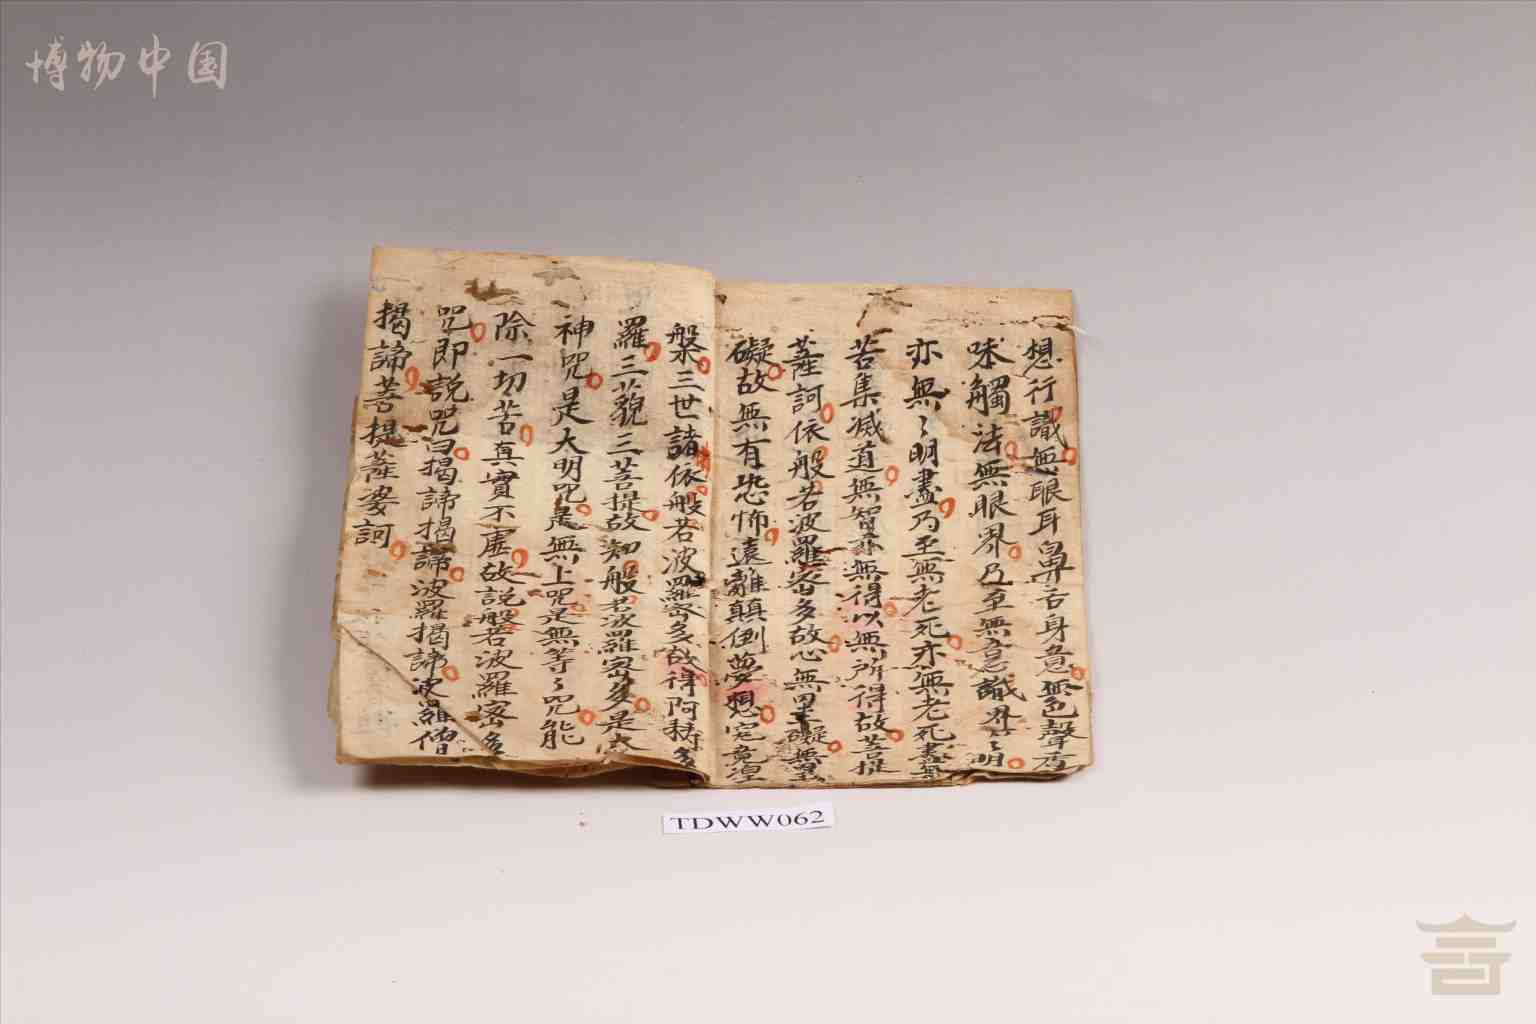 博物中国
想行識無眼耳鼻舌身意無色聲香
味觸法無眼界乃至無意識界〻明
亦無〻明盡乃至無老死亦無老死盡無
苦集滅道無智亦無得以無所得故菩提
薩訶依般若波羅密多故心無罣礙無罣
礙故無有恐怖遠離顛倒夢想究竟湼
槃三世諸依般若波羅密多故得阿耨多
羅三藐三菩提故知般若波羅密多是大
神咒是大明咒是無上咒是無等〻咒能
除一切苦真實不虛故說般若波羅密多
咒即說咒曰揭諦揭諦波羅揭諦波羅僧
揭諦菩提薩婆訶
TDWW062